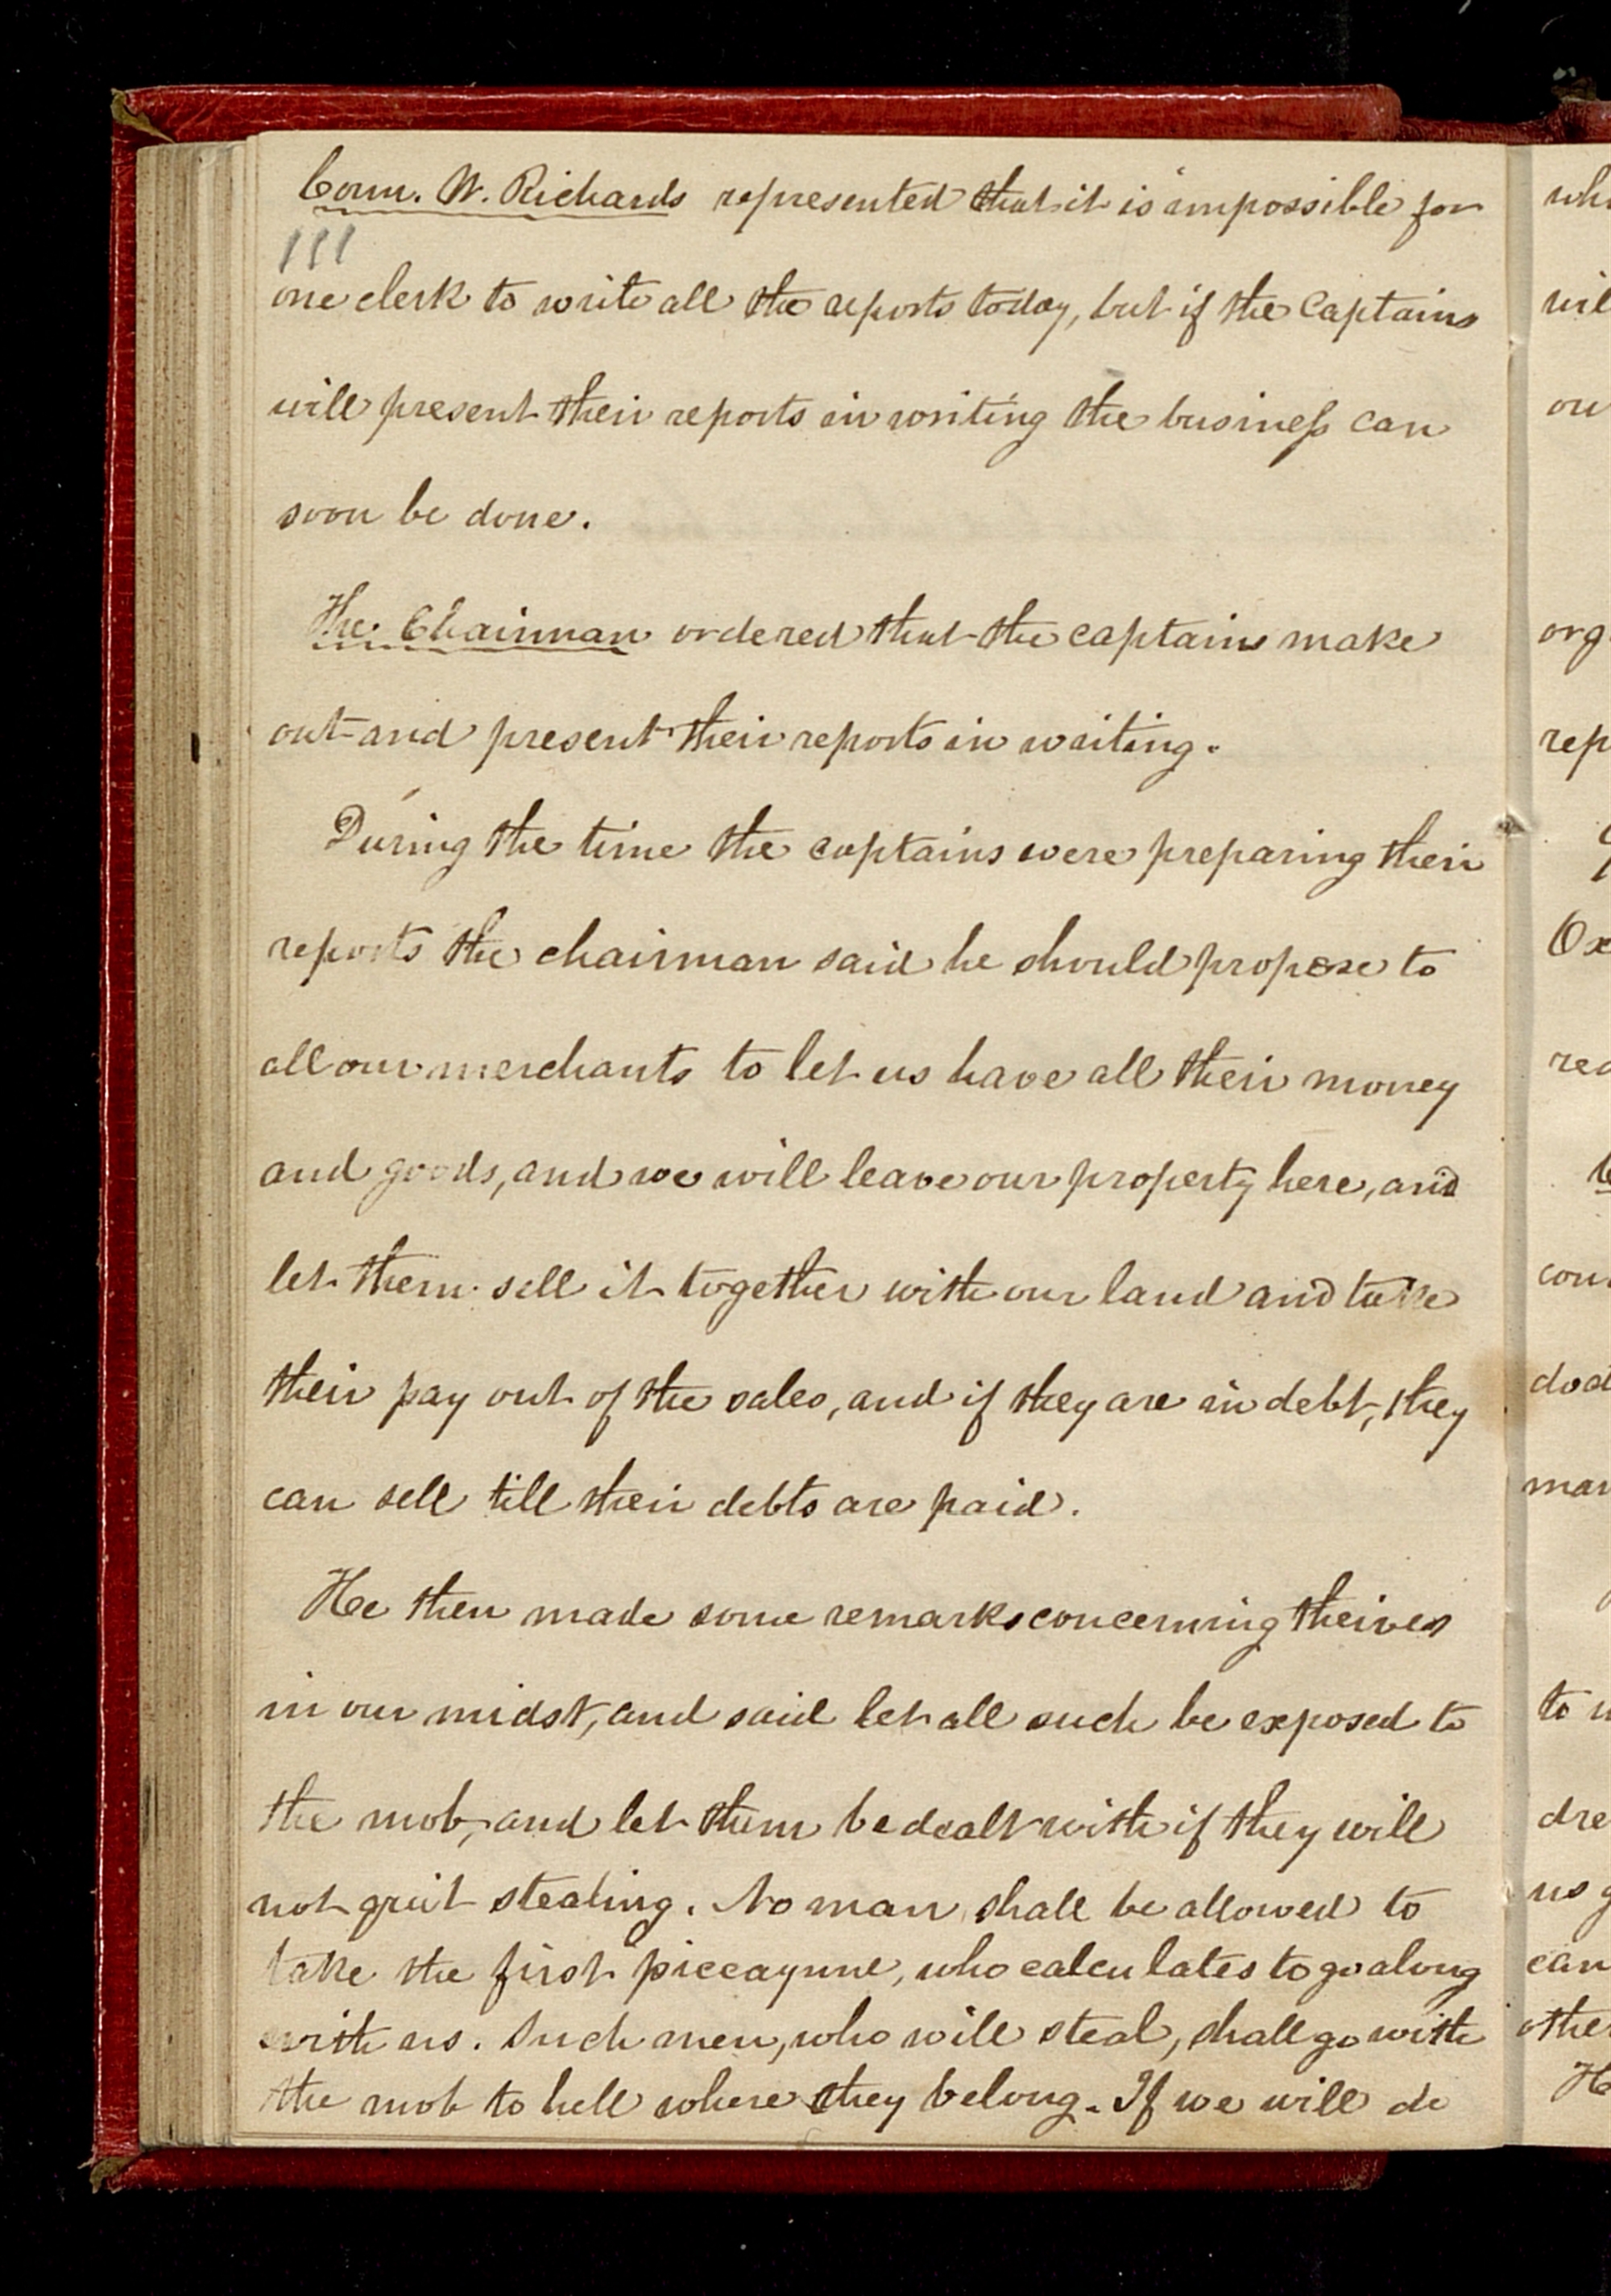 Coun. W. Richards represented that it is impossible for
111
one clerk to write all the reports today, but if the Captains
will present their reports in writing the business can
soon be done.
The Chairman ordered that the captains make
out and present their reports in writing.
During the time the captains were preparing their
reports the chairman said he should propose to
all our merchants to let us have all their money
and goods, and we will leave our property here, and
let them sell it together with our land and take
their pay out of the sales, and if they are in debt, they
can sell till their debts are paid.
He then made some remarks concerning theives
in our midst, and said let all such be exposed to
the mob, and let them be dealt with if they will
not quit stealing. No man shall be allowed to
take the first piccayune, who calculates to go along
with us. Such men, who will steal, shall go with
the mob to hell where they belong. If we will do